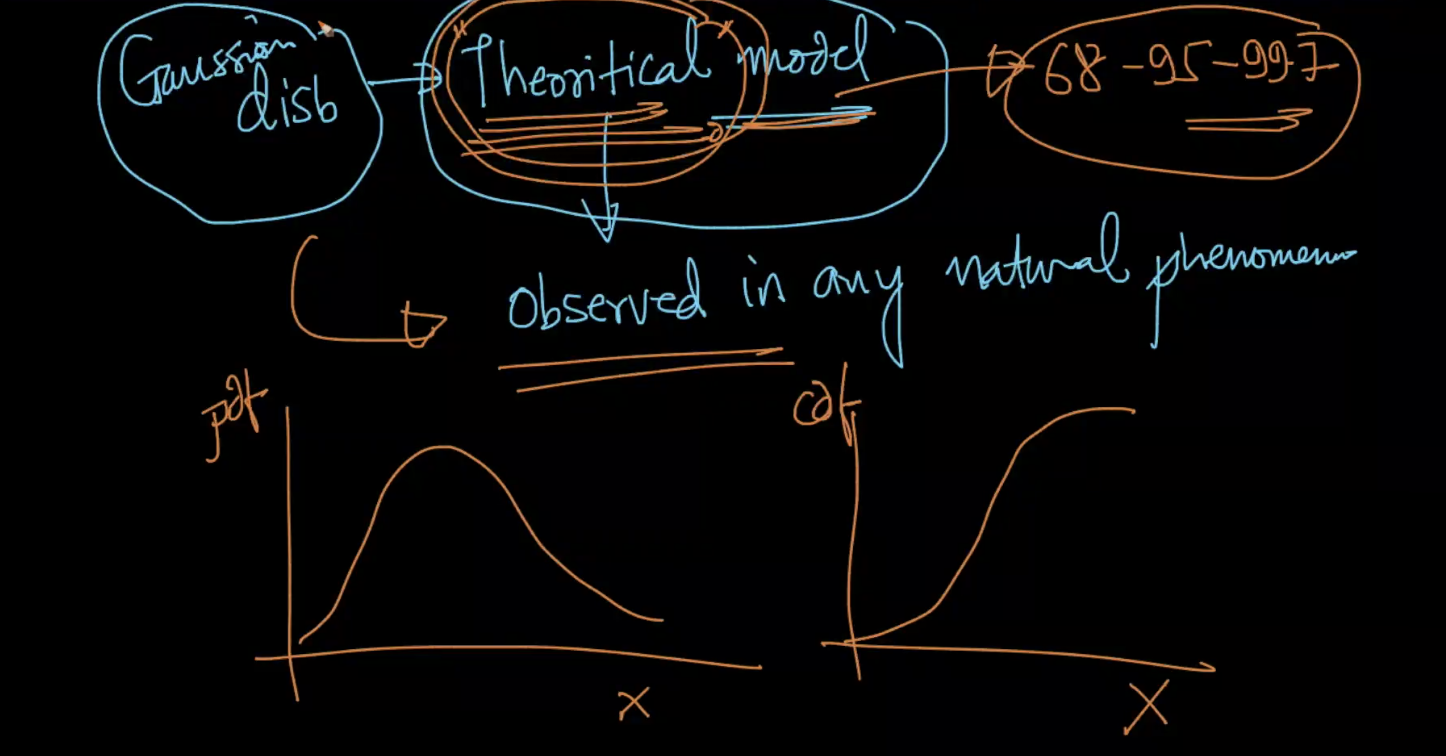 Gaussian
disb
"Theoritical" model
68-95-997
Observed in any natural phenomena
pdf
cdf
x
X